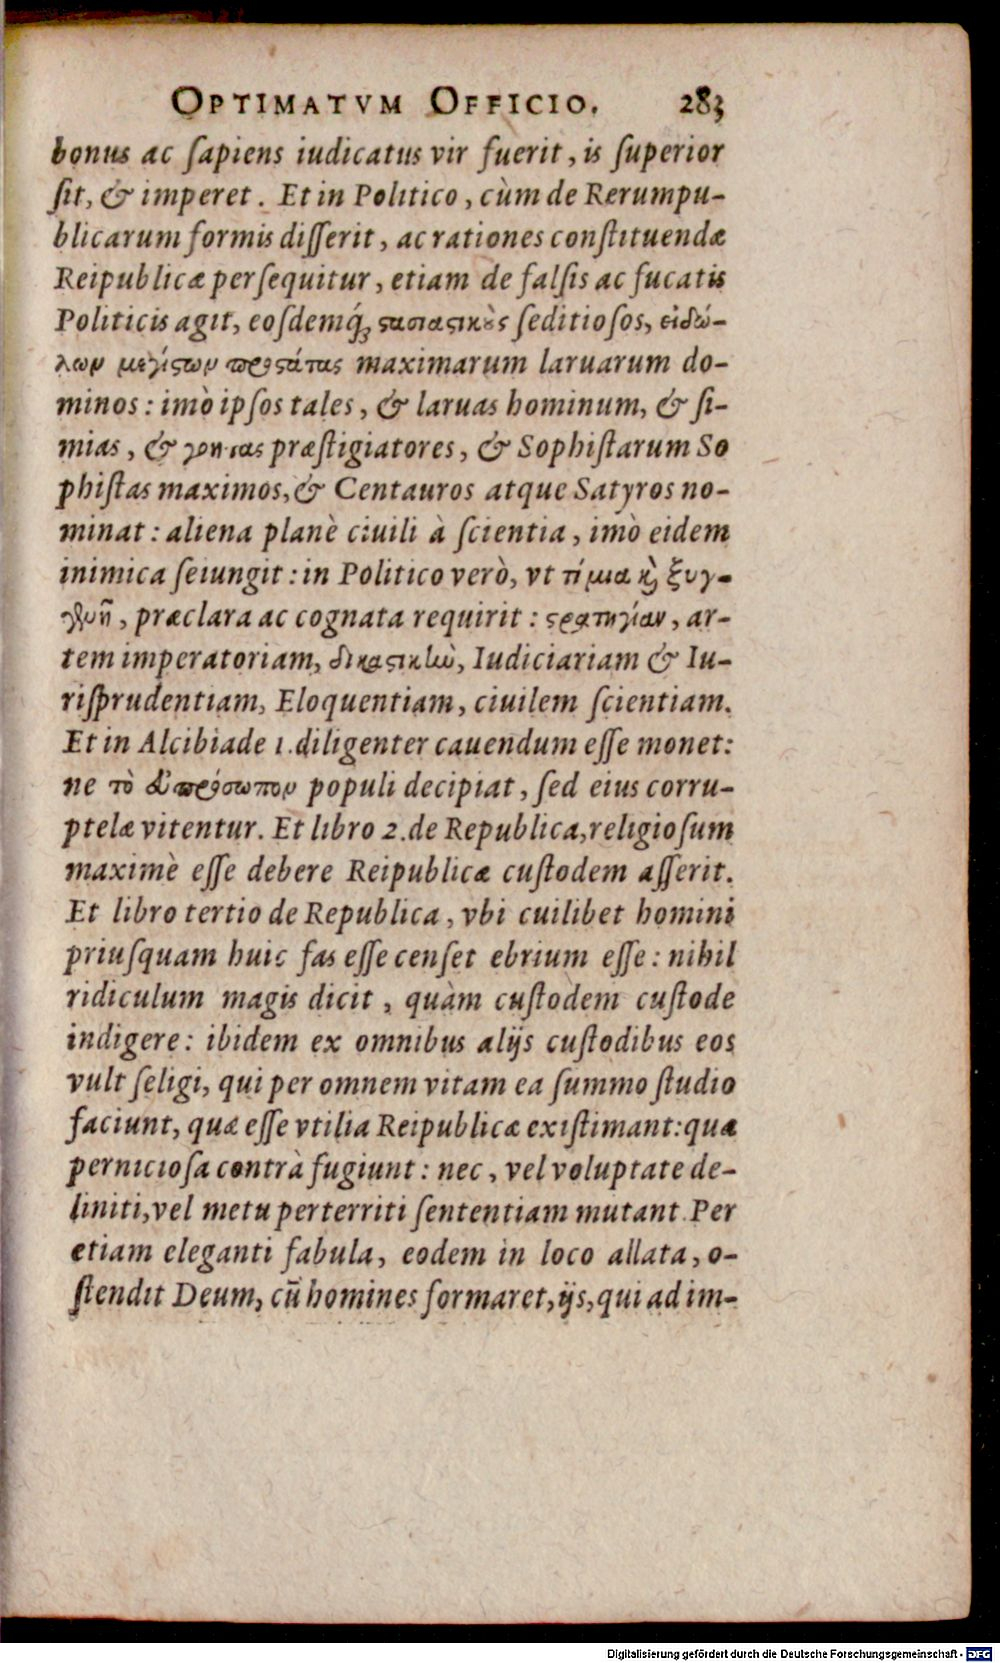 OPTIMATVM OFFICIO. 283
bonus ac ſapiens iudicatus vir fuerit, is ſuperior
ſit, & imperet. Et in Politico, cùm de Rerumpu-
blicarum formis diſſerit, ac rationes conſtituendæ
Reipublicæ perſequitur, etiam de falſis ac fucatis
Politicis agit, eoſdemq́ꝫ ϛασιαϛικοὺς ſeditioſos, εἰδώ-
λων μεγίϛων προϛάτας maximarum laruarum do-
minos: imò ipſos tales, & laruas hominum, & ſi-
mias, & γόητας præſtigiatores, & Sophiſtarum So
phiſtas maximos, & Centauros atque Satyros no-
minat: aliena planè ciuili à ſcientia, imò eidem
inimica ſeiungit: in Politico verò, vt τίμια κὶ ξυγ-
γενῆ, præclara ac cognata requirit: ϛρατηγίαν, ar-
tem imperatoriam, δικαϛικὼ, Iudiciariam & Iu-
riſprudentiam, Eloquentiam, ciuilem ſcientiam.
Et in Alcibiade 1. diligenter cauendum eſſe monet:
ne τὸ εὐπρόσωπον populi decipiat, ſed eius corru-
ptelæ vitentur. Et libro 2. de Republica, religioſum
maximè eſſe debere Reipublicæ cuſtodem aſſerit.
Et libro tertio de Republica, vbi cuilibet homini
priuſquam huic fas eſſe cenſet ebrium eſſe: nihil
ridiculum magis dicit, quàm cuſtodem cuſtode
indigere: ibidem ex omnibus alijs cuſtodibus eos
vult ſeligi, qui per omnem vitam ea ſummo ſtudio
faciunt, quæ eſſe vtilia Reipublicæ exiſtimant: quæ
pernicioſa contrà fugiunt: nec, vel voluptate de-
liniti, vel metu perterriti ſententiam mutant. Per
etiam eleganti fabula, eodem in loco allata, o-
ſtendit Deum, cū homines formaret, ijs, qui ad im-
Digitalisierung gefördert durch die Deutsche Forschungsgemeinschaft - DFG